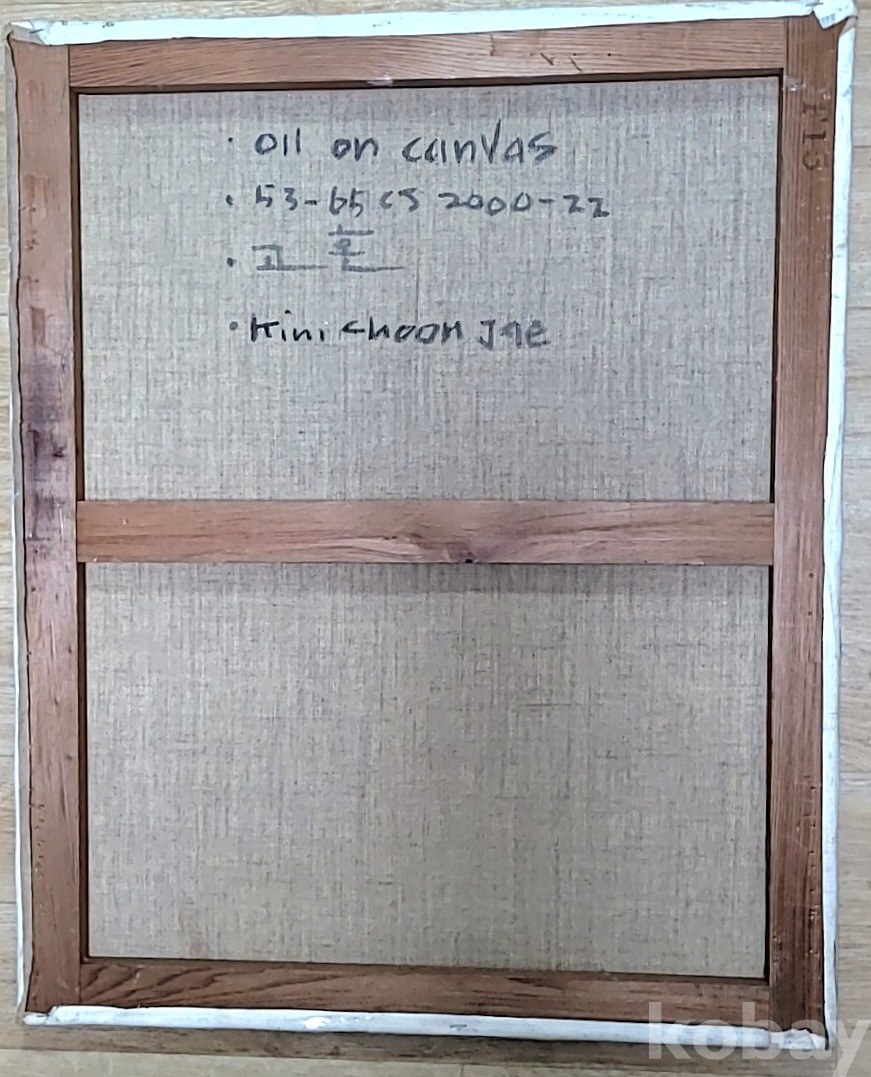 · oil on canvas
· 53-65 cs 2000-22
· 고
· Kim choon Jae
F15
kobay